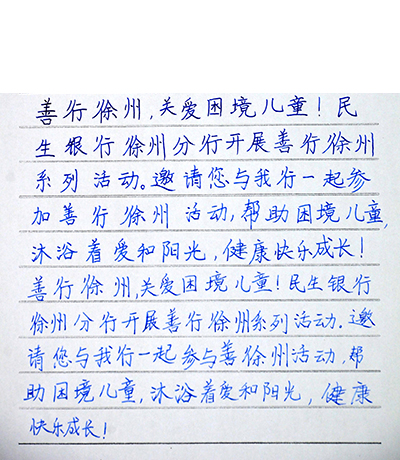 善行徐州,关爱困境儿童!民
生银行徐州分行开展善行徐州
系列活动。邀请您与我行一起参
加善行徐州活动,帮助困境儿童,
沐浴着爱和阳光,健康快乐成长!
善行徐州,关爱困境儿童!民生银行
徐州分行开展善行徐州系列活动.邀
请您与我行一起参与善徐州活动,帮
助困境儿童,沐浴着爱和阳光,健康
快乐成长!